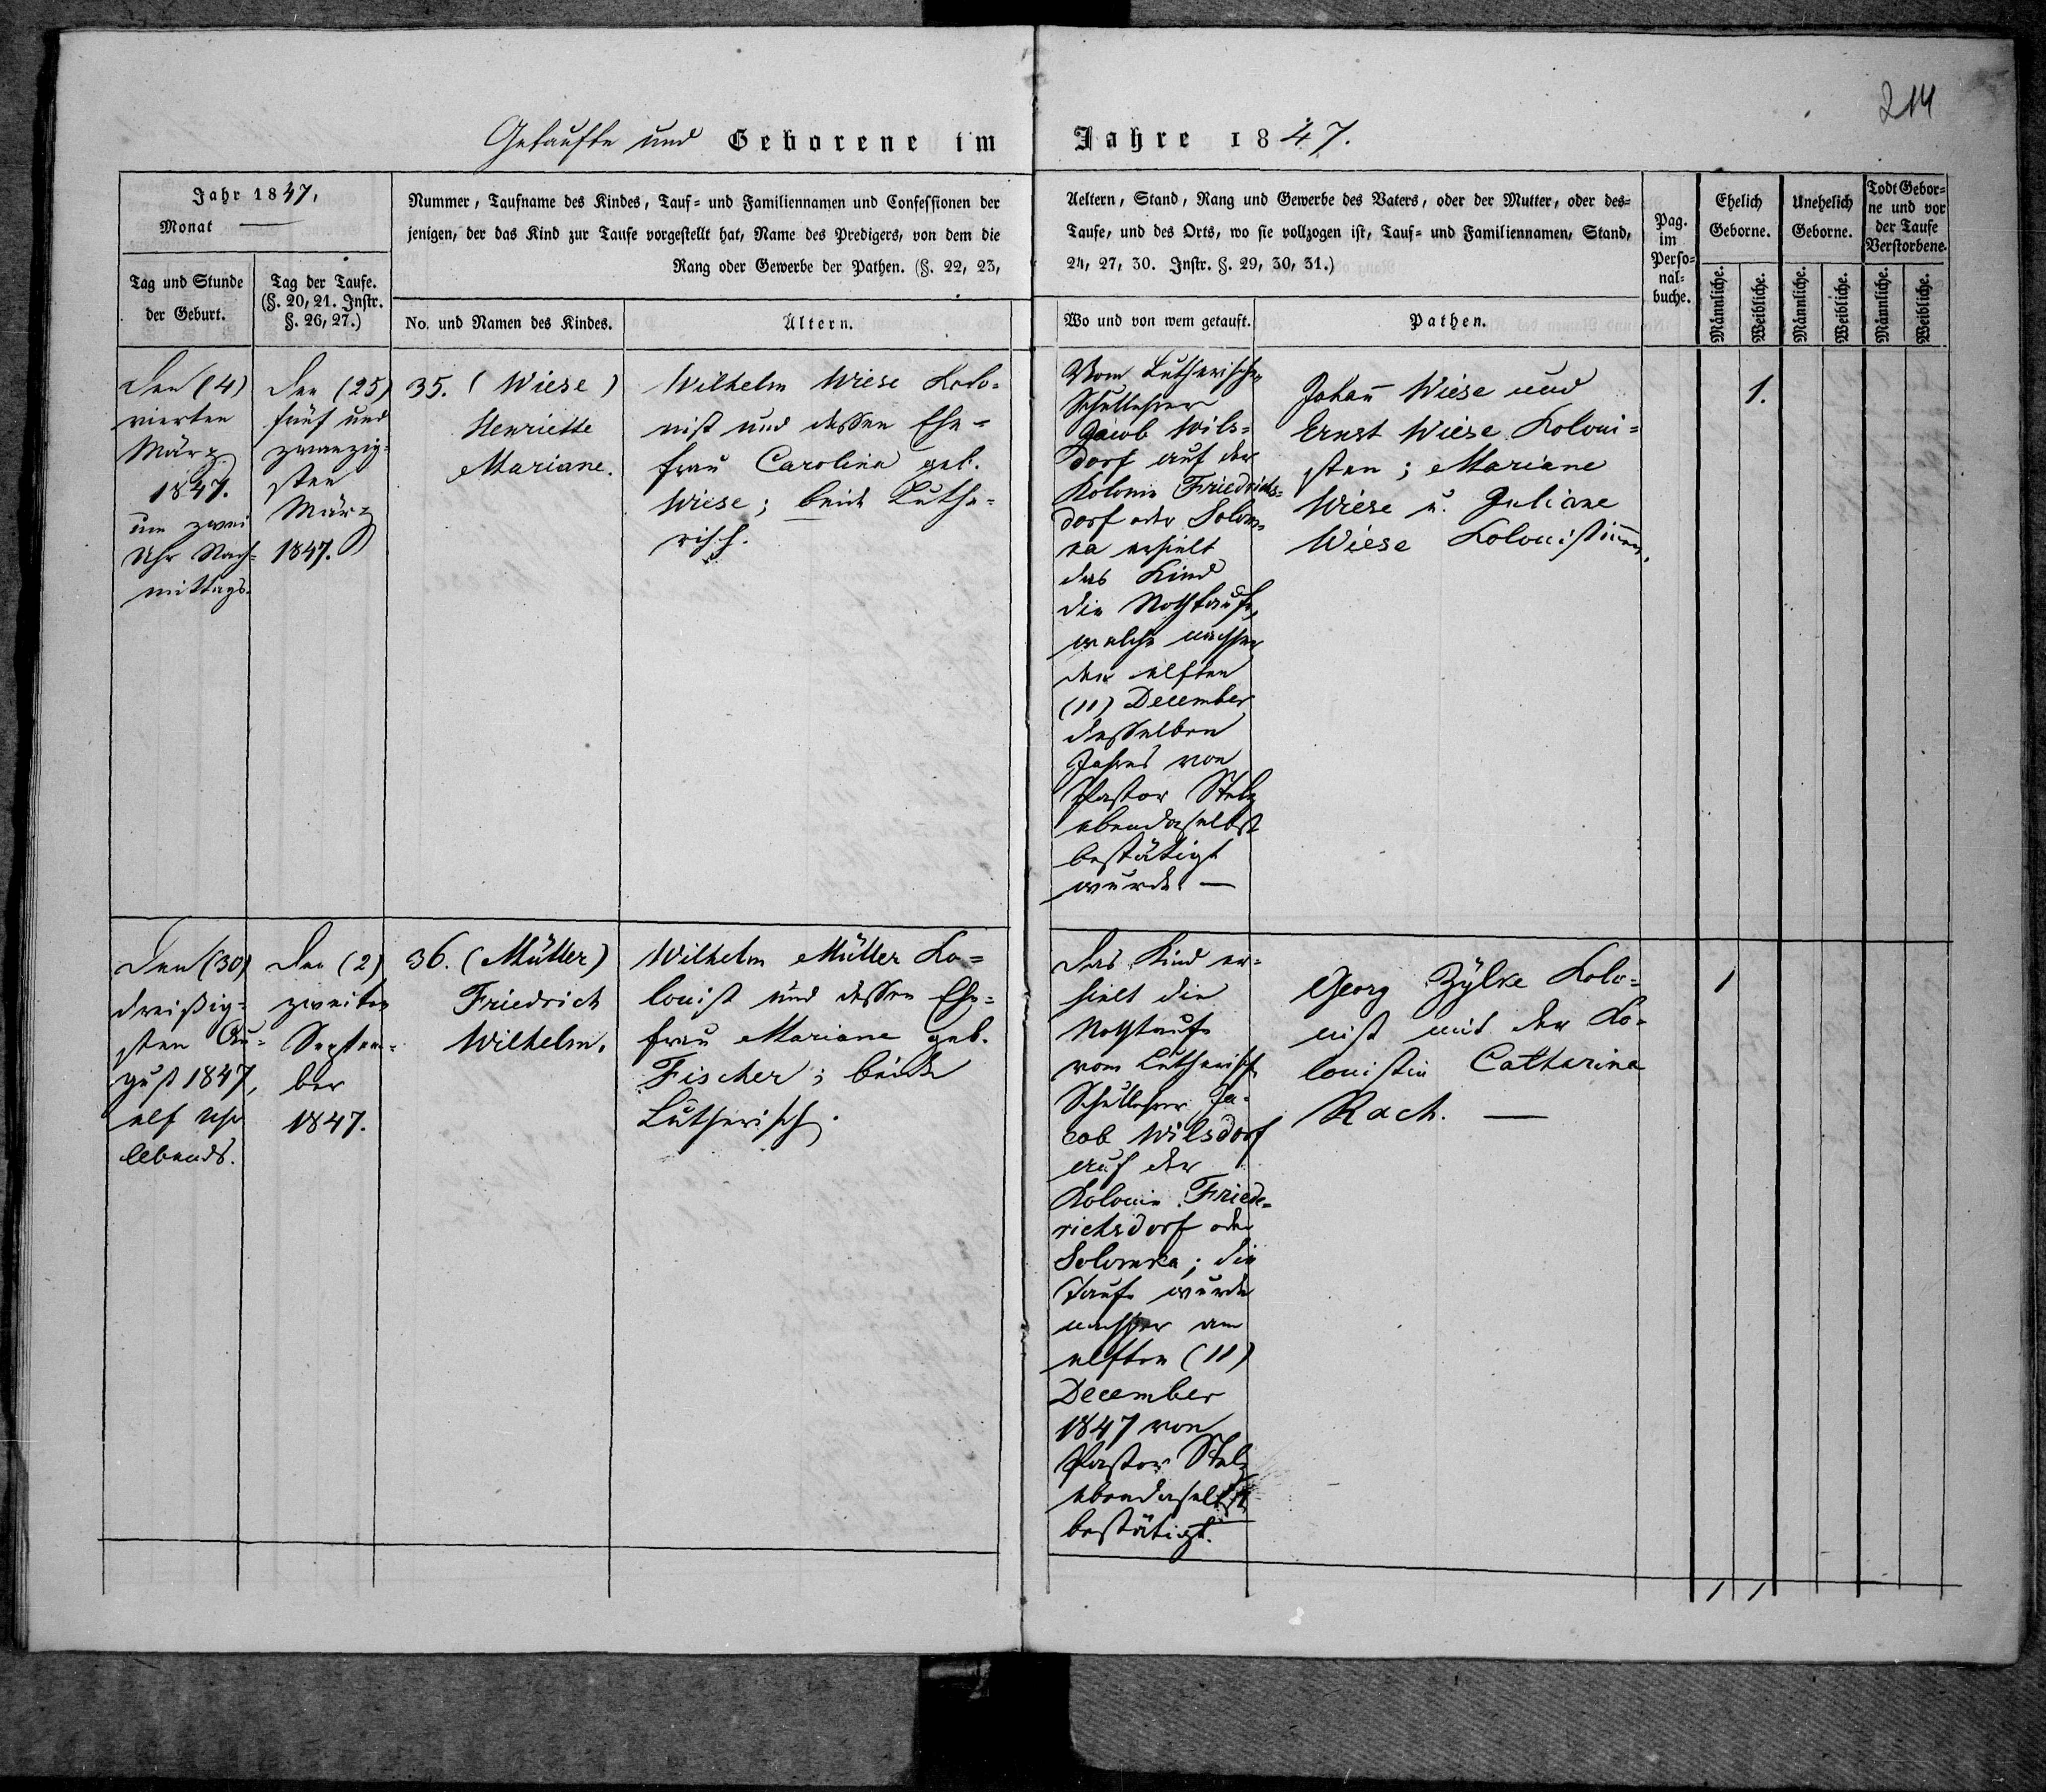 214
Getaufte und Geborene im Jahre 1847.
Jahr 1847,
Monat —
Tag und Stunde
der Geburt.
Tag der Taufe.
(§. 20, 21. Instr.
§. 26, 27.)
Nummer, Taufname des Kindes, Tauf- und Familiennamen und Confessionen der
jenigen, der das Kind zur Taufe vorgestellt hat, Name des Predigers, von dem die
Rang oder Gewerbe der Pathen. (§. 22, 23,
No. und Namen des Kindes.
Ältern.
Aeltern, Stand, Rang und Gewerbe des Vaters, oder der Mutter, oder des-
Taufe, und des Orts, wo sie vollzogen ist, Tauf- und Familiennamen, Stand,
24, 27, 30. Instr. §. 29, 30, 31.)
Wo und von wem getauft.
Pathen.
Pag.
im
Perso-
nal-
buche.
Ehelich
Geborne.
Unehelich
Geborne.
Todt Gebor-
ne und vor
der Taufe
Verstorbene.
Männliche.
Weibliche.
Männliche.
Weibliche.
Männliche.
Weibliche.
Den (4)
vierten
März
1847.
um zwei
Uhr Nach-
mittags.
Den (25)
fünf und
zwanzig-
sten
März
1847.
35. (Wiese)
Henriette
Mariane.
Wilhelm Wiese Kolo-
nist und dessen Ehe-
frau Carolina geb.
Wiese; beide Luthe-
risch.
Vom Lutherischen
Schullehrer
Jacob Wils-
dorf auf der
Kolonie Friedrichs-
dorf oder Solom-
ka erhielt
das Kind
die Nothtaufe,
welche nachher
den elften
(11) December
desselben
Jahres von
Pastor Stelz
ebendaselbst
bestätigt
wurde. —
Johan̄ Wiese und
Ernst Wiese Koloni-
sten; Mariane
Wiese u. Juliane
Wiese Kolonistin̄en.
1.
Den (30)
dreißig-
sten Au-
gust 1847,
elf Uhr
Abends.
Den (2)
zweiten
Septem-
ber
1847.
36. (Müller)
Friedrich
Wilhelm.
Wilhelm Müller Ko-
lonist und dessen Ehe-
frau Mariane geb.
Fischer; beide
Lutherisch.
Das Kind er-
hielt die
Nothtaufe
vom Lutherisch.
Schullehrer Ja-
cob Wilsdorf
auf der
Kolonie Friede-
richsdorf oder
Solomka; die
Taufe wurde
nachher am
elften (11)
December
1847 von
Pastor Stelz
ebendaselbst
bestätigt.
Georg Zÿlke Kolo-
nist mit der Ko-
lonistin Catharina
Rach. —
1
1 1